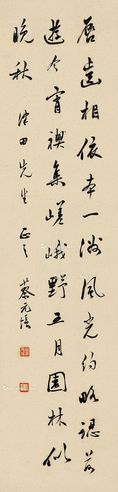 唇齒相依本一洲風光約略認前
遊今宵禊集嵯峨野五月園林似
晚秋
津田先生正之
蔡元培